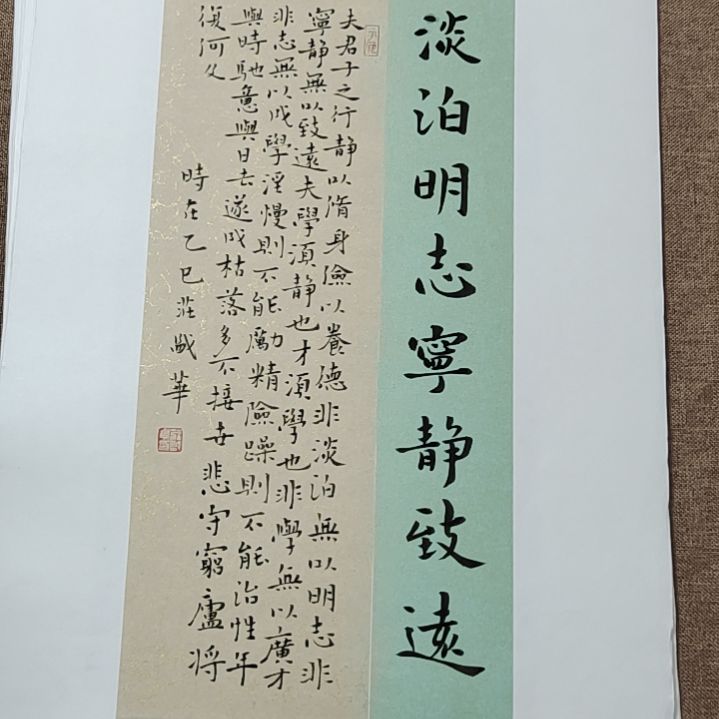 淡泊明志寧靜致遠
夫君子之行静以脩身儉以養德非淡泊無以明志非
寧静無以致遠夫學須静也才須學也非學無以廣才
非志無以成學淫慢則不能勵精險躁則不能治性年
與時馳意與日去遂成枯落多不接世悲守窮廬將
復何及
時在乙巳莊戚華